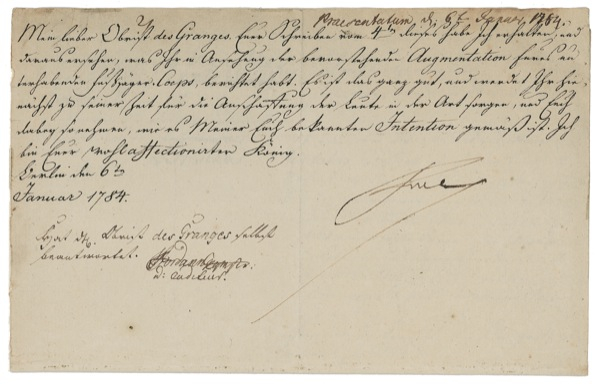 Praesentatum, d. 8t. Januar 1784.
Mein lieber Obrist des Granges. Euer Schreiben vom 4ten dieses habe Ich erhalten, und
daraus ersehen, was Ihr in Ansehung der bevorstehenden Augmentation Eures un-
terhabenden Fußjäger-Corps, berichtet habt. Es ist das ganz gut, und werdet Ihr hier-
nächst zu seiner Zeit für die Anschaffung der Leute in der Art sorgen, und Euch
dabey so nehmen, wie es Meiner Euch bekannten Intention gemäß ist. Ich
bin Euer wohlaffectionirter König.
Berlin den 6ten
Januar 1784.
Fre
Obrist des Granges selbst
beantwortet.